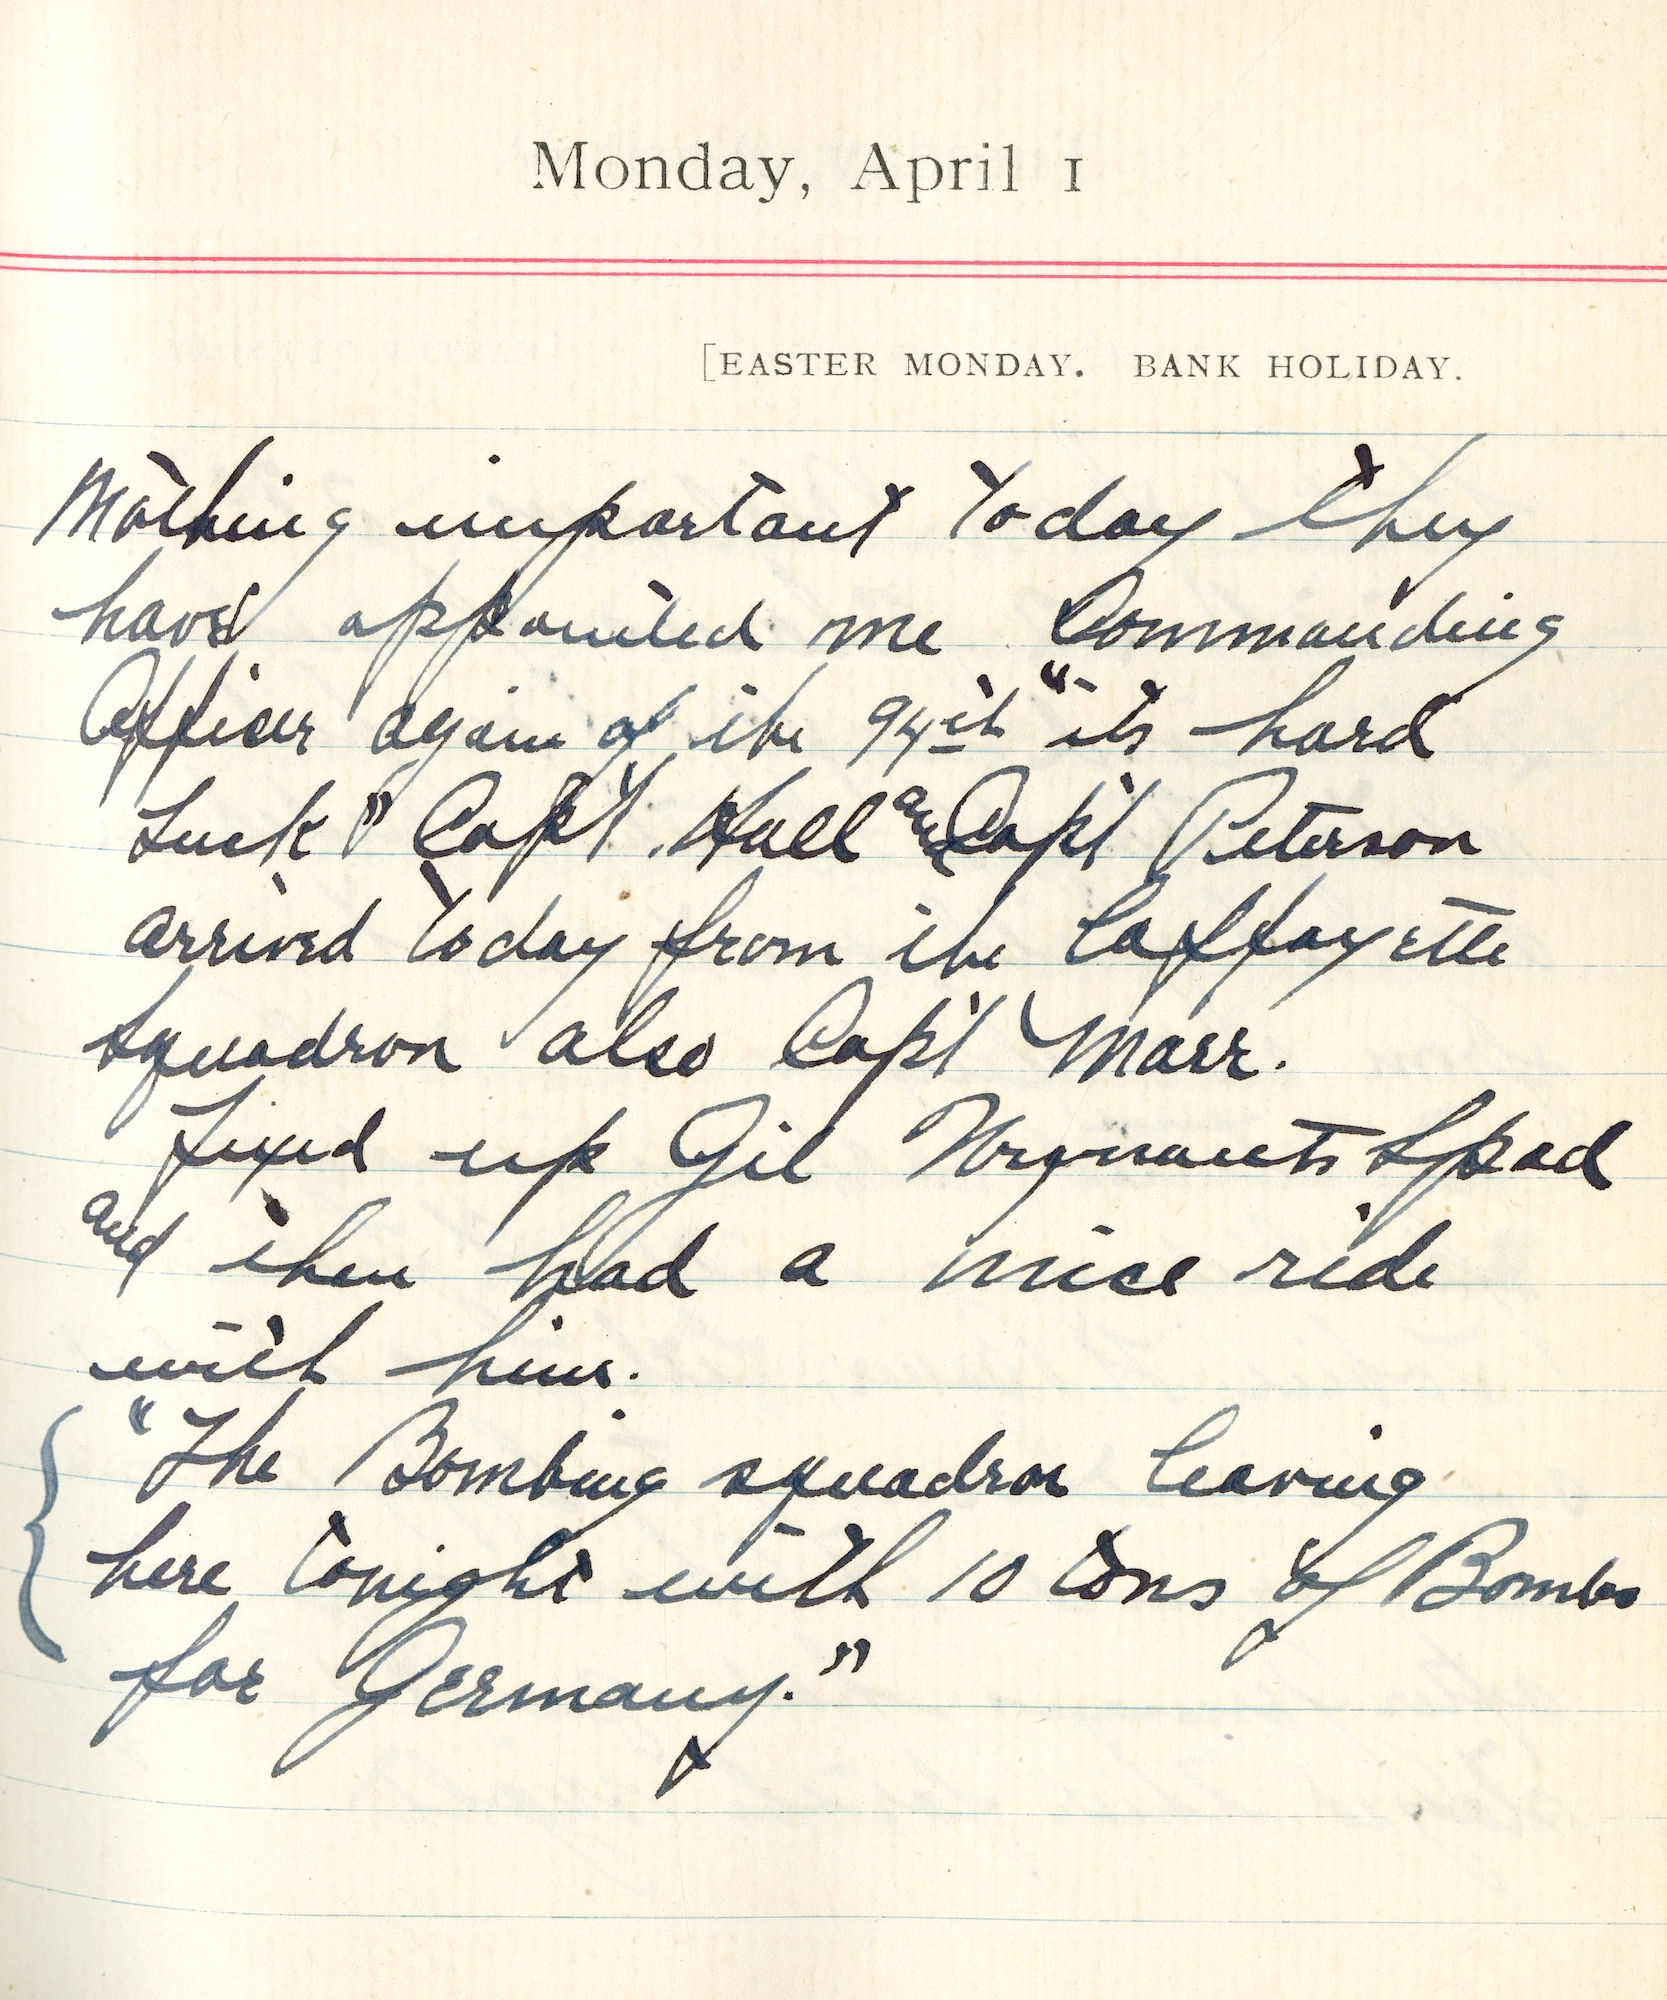 Monday, April 1
[EASTER MONDAY. BANK HOLIDAY.
Nothing important today they
have appointed me Commanding
Officer again of the 94th "its hard
Luck" Capt. Hall and Capt Peterson
arrived today from the Laffayette
squadron also Capt Marr.
Fixed up Gil Spad
and then had a nice ride
with him.
"The Bombing squadron leaving
here tonight with 10 tons of Bombs
for Germany."